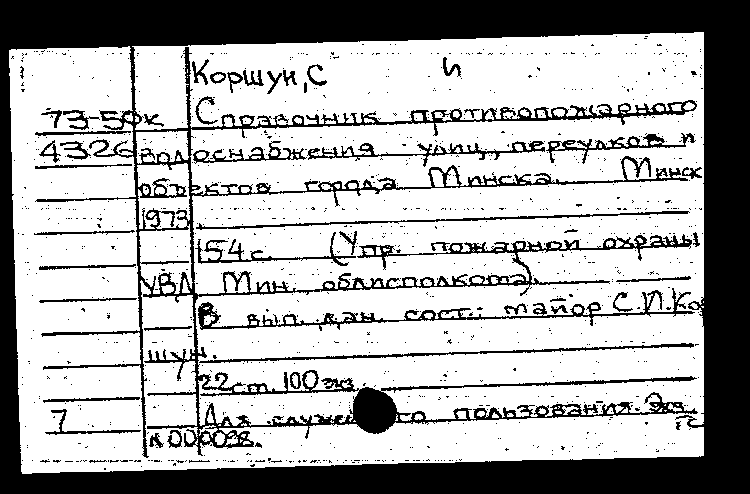 Коршун, С И
73-50к Справочник противопожарного
4326 водоснабжения улиц, переулков и
объектов города Минска. Минск
1973.
154 с. (Упр. пожарной охраны
УВД Мин. облисполкома).
В вып. дан. сост.: майор С.И.Ко
шун.
22 ст. 100 экз.
7 Для служе го пользования. Экз.
№ 000038.